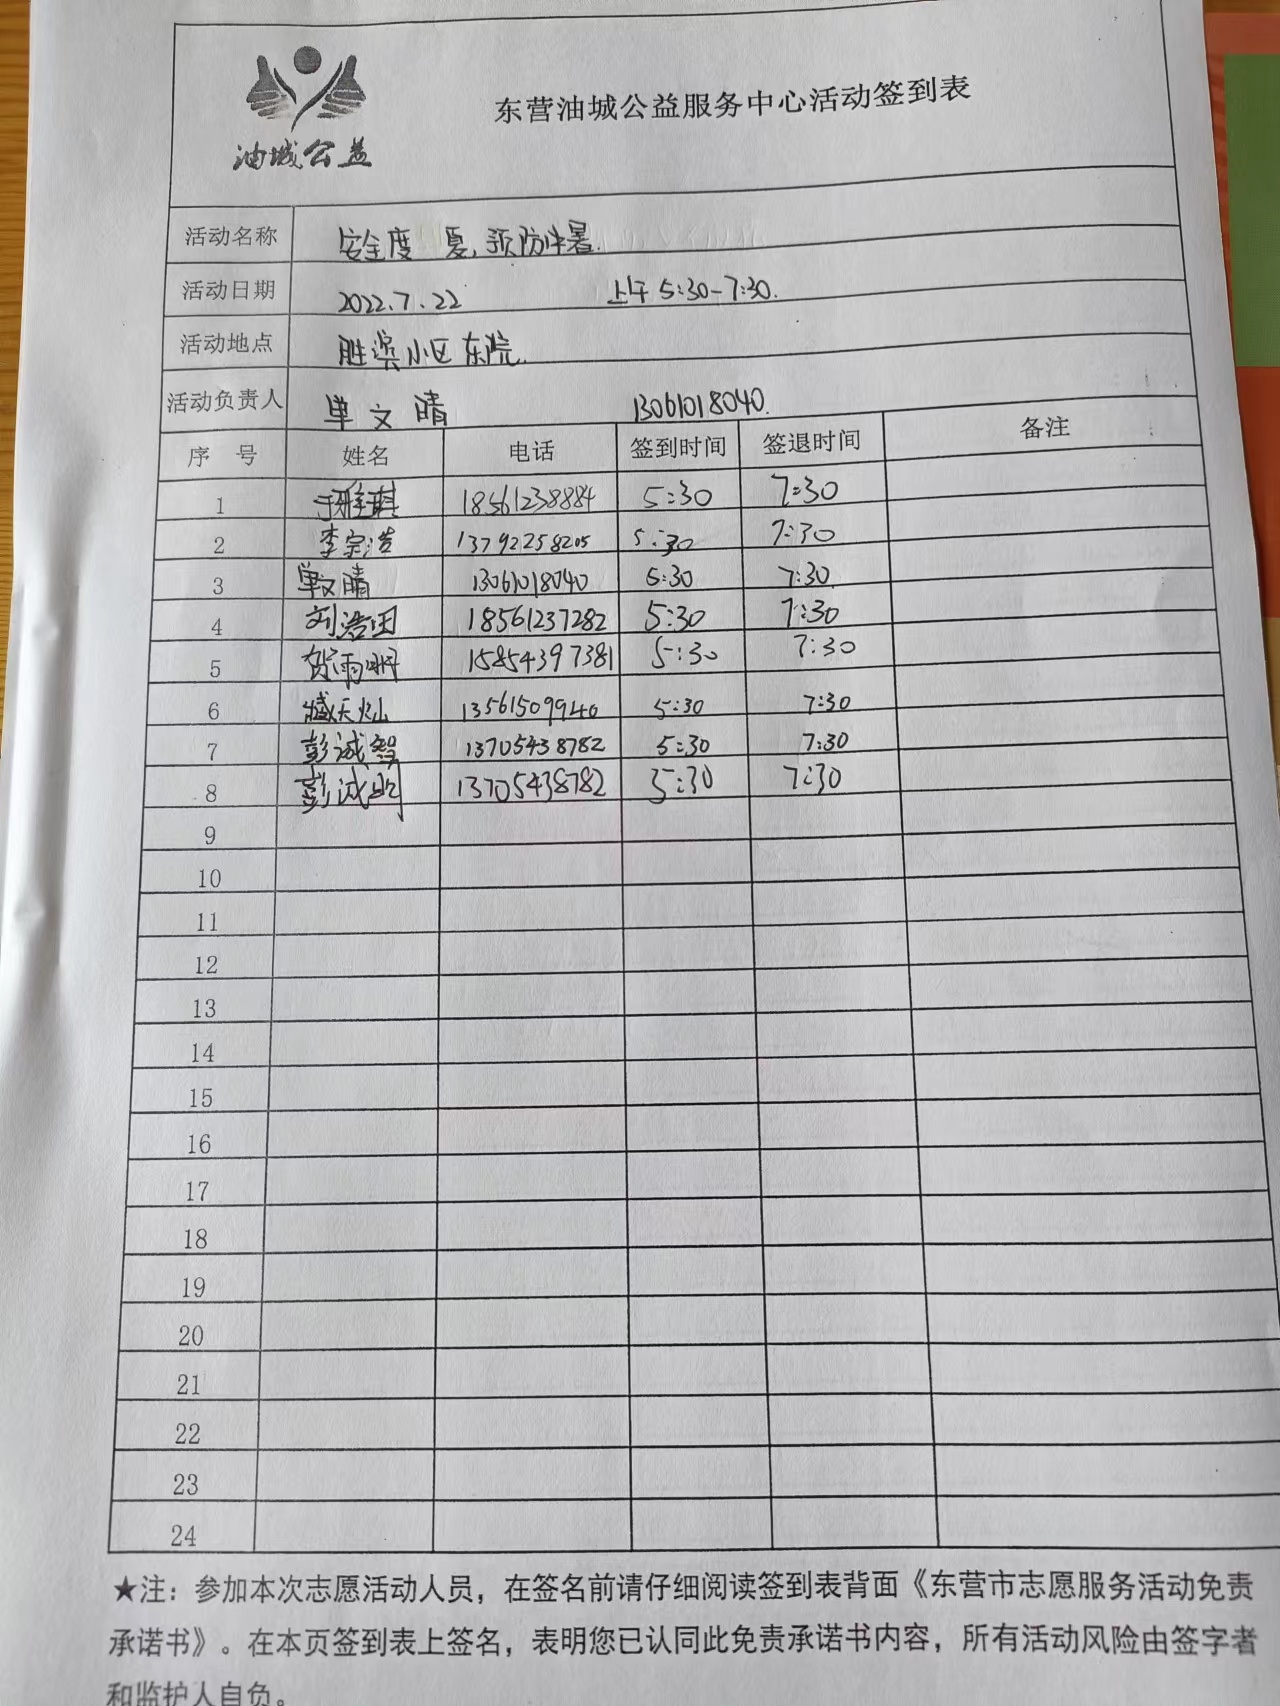 油城公益
东营油城公益服务中心活动签到表
活动名称 安全度 夏,预防中暑.
活动日期 2022.7.22 上午 5:30-7:30.
活动地点 胜滨小区东院.
活动负责人 单文晴 13061018040.
序 号 姓名 电话 签到时间 签退时间 备注
1 于雅琪 18561238884 5:30 7:30
2 李宗浩 13792258205 5:30 7:30
3 单文晴 13061018040 5:30 7:30
4 刘浩田 18561237282 5:30 7:30
5 贺雨珊 15854397381 5:30 7:30
6 臧天灿 13561509940 5:30 7:30
7 彭诚智 13705438782 5:30 7:30
8 彭诚明 13705438782 5:30 7:30
9
10
11
12
13
14
15
16
17
18
19
20
21
22
23
24
★注：参加本次志愿活动人员，在签名前请仔细阅读签到表背面《东营市志愿服务活动免责
承诺书》。在本页签到表上签名，表明您已认同此免责承诺书内容，所有活动风险由签字者
和监护人自负。